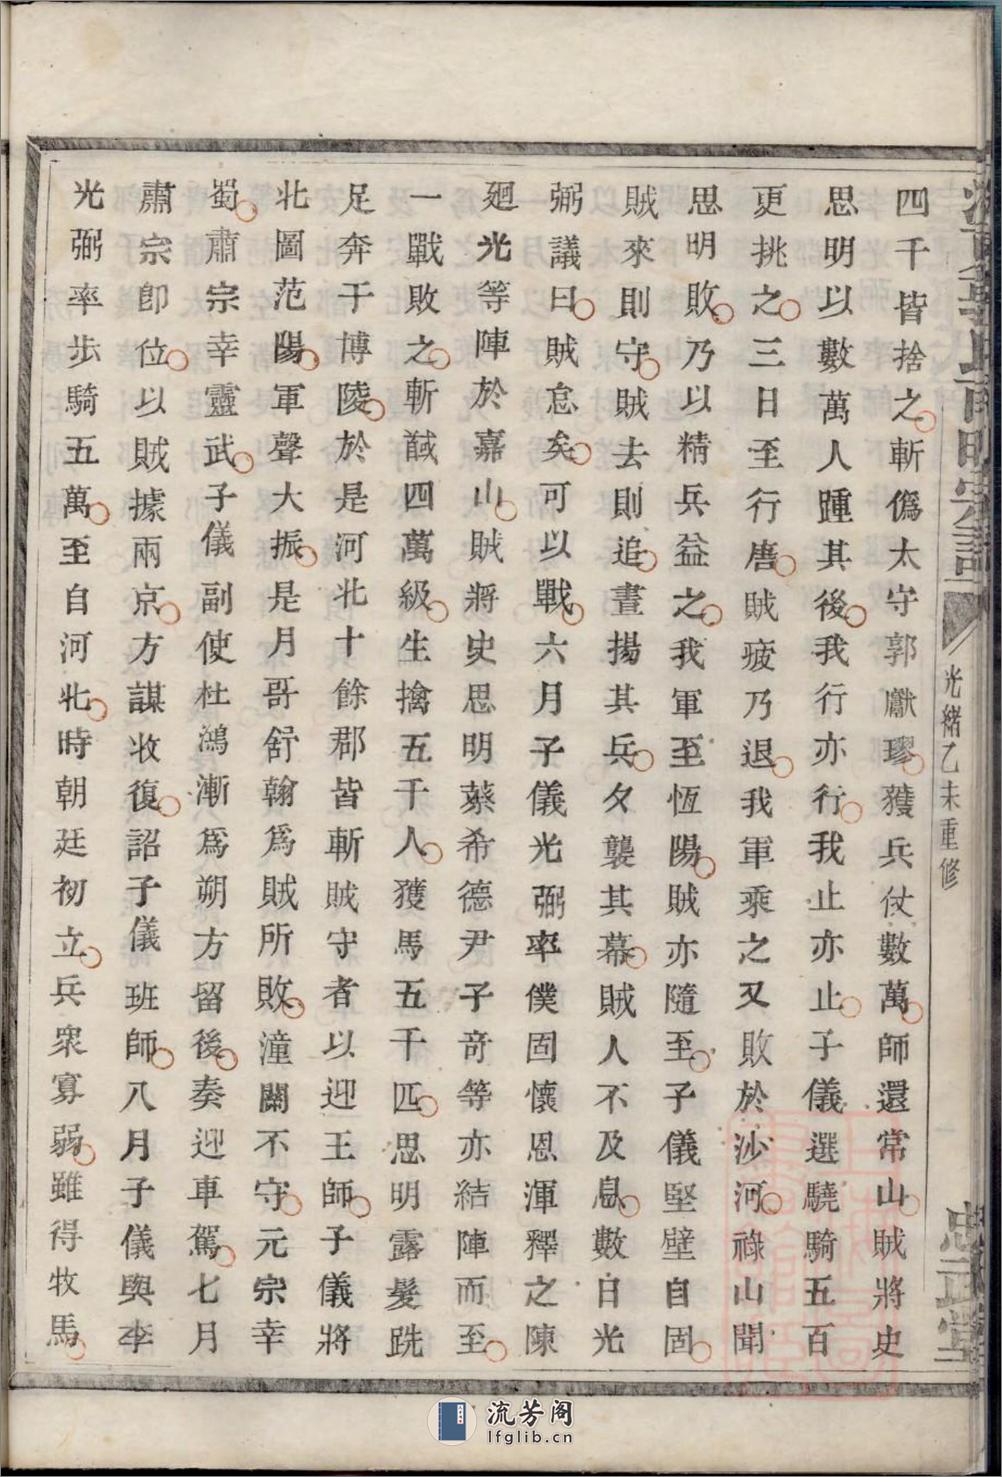 四千皆捨之斬僞太守郭獻璆獲兵仗數萬師還常山賊將史
思明以數萬人踵其後我行亦行我止亦止子儀選驍騎五百
更挑之三日至行唐賊疲乃退我軍乘之又敗於沙河祿山聞
思明敗乃以精兵益之我軍至恆陽賊亦隨至子儀堅壁自固
賊來則守賊去則追晝揚其兵夕襲其幕賊人不及息數日光
弼議曰賊怠矣可以戰六月子儀光弼率僕固懷恩渾釋之陳
廻光等陣於嘉山賊將史思明蔡希德尹子奇等亦結陣而至
一戰敗之斬馘四萬級生擒五千人獲馬五千匹思明露髮跣
足奔于博陵於是河北十餘郡皆斬賊守者以迎王師子儀將
北圖范陽軍聲大振是月哥舒翰爲賊所敗潼關不守元宗幸
蜀肅宗幸靈武子儀副使杜鴻漸爲朔方留後奏迎車駕七月
肅宗卽位以賊據兩京方謀收復詔子儀班師八月子儀與李
光弼率步騎五萬至自河北時朝廷初立兵眾寡弱雖得牧馬
光緒乙未重修
忠武堂
流芳阁
lfglib.cn